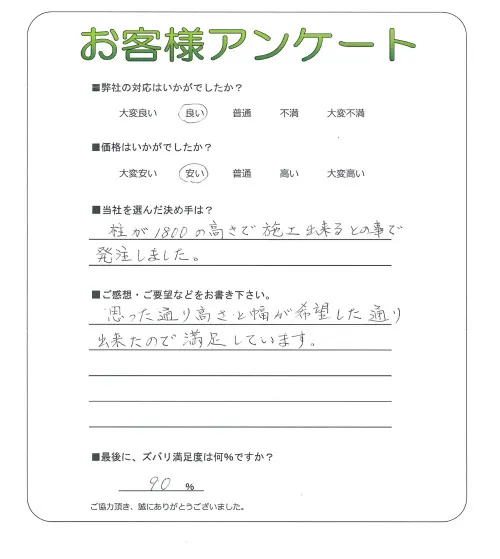 お客様アンケート
■弊社の対応はいかがでしたか？
大変良い 良い 普通 不満 大変不満
■価格はいかがでしたか？
大変安い 安い 普通 高い 大変高い
■当社を選んだ決め手は？
柱が1800の高さで施工出来るとの事で
発注しました。
■ご感想・ご要望などをお書き下さい。
思った通り高さと幅が希望した通り
出来たので満足しています。
■最後に、ズバリ満足度は何%ですか？
90 %
ご協力頂き、誠にありがとうございました。